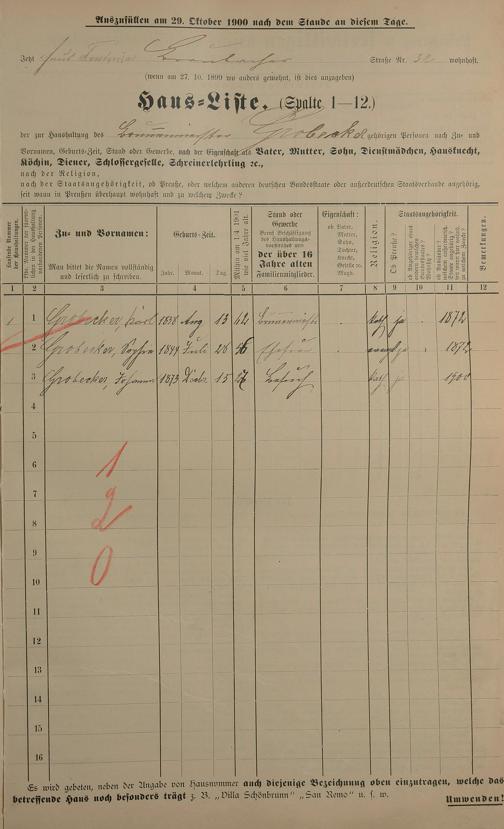 Auszufüllen am 29. Oktober 1900 nach dem Stande an diesem Tage.
Jetzt Straße Nr. 32 wohnhaft.
(wenn am 27. 10. 1899 wo anders gewohnt, ist dies anzugeben)
Haus-Liste. (Spalte 1—12.)
der zur Haushaltung des Grobecker gehörigen Personen nach Zu- und
Vornamen, Geburts-Zeit, Stand oder Gewerbe, nach der Eigenschaft als Vater, Mutter, Sohn, Dienstmädchen, Hausknecht,
Köchin, Diener, Schlossergeselle, Schreinerlehrling ꝛc.,
nach der Religion,
nach der Staatsangehörigkeit, ob Preuße, oder welchem anderen deutschen Bundesstaate oder außerdeutschen Staatsverbande angehörig,
seit wann in Preußen überhaupt wohnhaft und zu welchem Zwecke?
Zu- und Vornamen:
Man bittet die Namen vollständig
und leserlich zu schreiben.
Geburts-Zeit.
Jahr. Monat. Tag.
Mithin am 1/4 1901
wie viel Jahre alt.
Stand oder
Gewerbe
der über 16
Jahre alten
Familienmitglieder.
Eigenschaft:
ob Vater,
Mutter,
Sohn,
Tochter,
Knecht,
Geselle ꝛc.
Magd.
Religion.
Staatsangehörigkeit.
Ob Preuße?
Bemerkungen.
1 2 3 4 5 6 7 8 9 10 11 12
1 1 Grobecker, Karl 1838 Aug 13 62 kath ja 1872
2 Grobecker, Sophia 1844 Juli 28 56 Ehefrau ja 1872
3 Grobecker, Johanna 1873 15 27 Besuch kath 1900
4
5
6
7
8
9
10
11
12
13
14
15
16
1
2
0
Es wird gebeten, neben der Angabe von Hausnummer auch diejenige Bezeichnung oben einzutragen, welche das
betreffende Haus noch besonders trägt z. B. „Villa Schönbrunn" „San Remo" u. s. w. Umwenden!